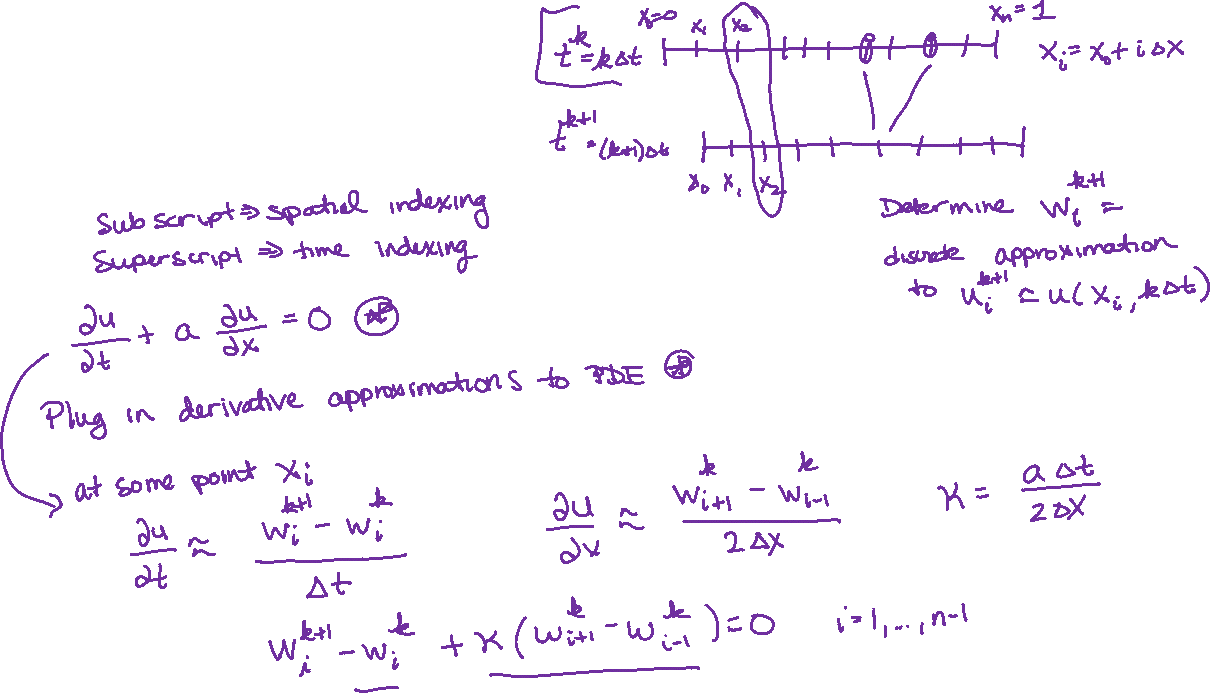 x₀=0 x₁ x₂ xₙ=1
tᵏ=kΔt
xᵢ=x₀+iΔx
tᵏ⁺¹=(k+1)Δt
x₀ x₁ x₂
Subscript ⇒ spatial indexing
Superscript ⇒ time indexing
Determine wᵢᵏ⁺¹ =
discrete approximation
to uᵢᵏ⁺¹ = u(xᵢ, kΔt)
∂u/∂t + a ∂u/∂x = 0 ⊛
Plug in derivative approximations to PDE ⊛
at some point xᵢ
∂u/∂t ≈ (wᵢᵏ⁺¹ - wᵢᵏ)/Δt
∂u/∂x ≈ (wᵢ₊₁ᵏ - wᵢ₋₁ᵏ)/2Δx
κ = aΔt/2Δx
wᵢᵏ⁺¹ - wᵢᵏ + κ(wᵢ₊₁ᵏ - wᵢ₋₁ᵏ) = 0 i=1,...,n-1